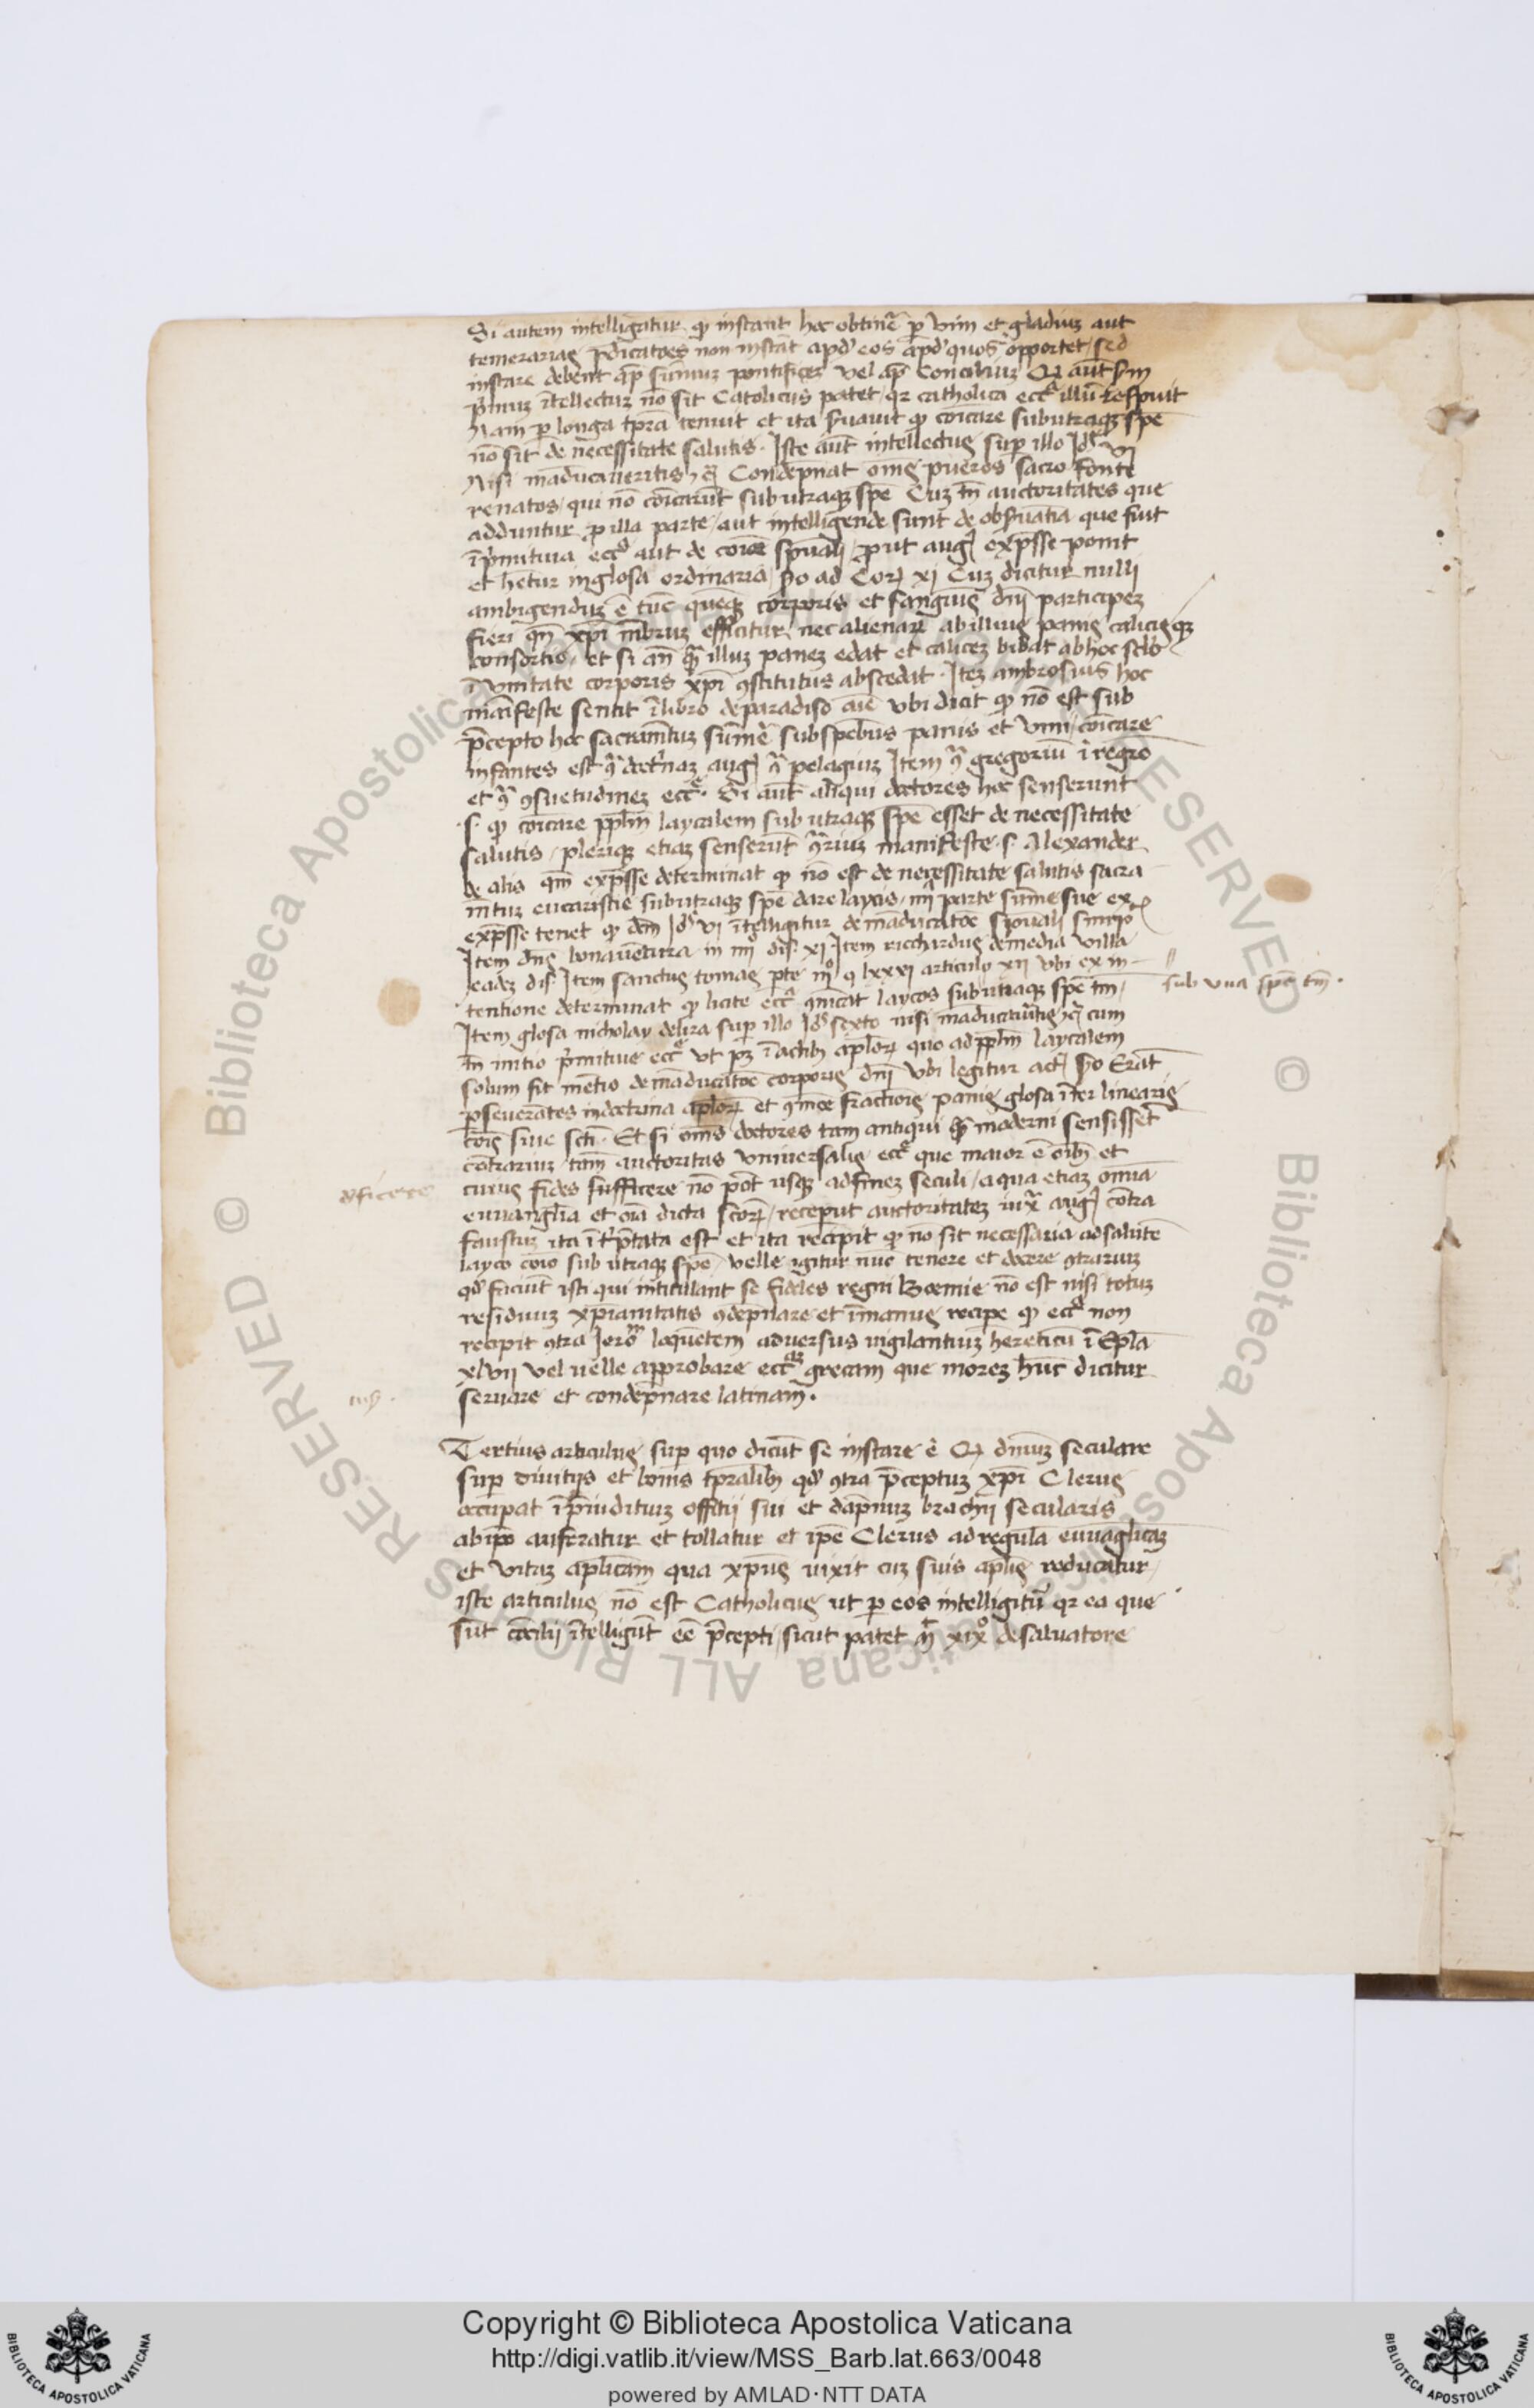 Si autem intelligatur qꝫ instant hoc obtinē̄ ꝑ vim et gladiuꝫ aut
temerarias p̄dicatōes non instāt apđ eos apđ quos opportet / sed
instare debent ap̄ sūmuꝫ pontificeꝫ vel ap̄ conciliuꝫ Qꝫ aūt
p̄muꝫ ītellectuꝫ nō sit Catolicus patet / qꝛ catholica eccᵃ illū respuit
Nam ꝑ longa tp̄ra tenuit et ita ſ̄uauit qꝫ cōicare sub utraqꝫ spē
nō sit de necessitate salutis . Iste aūt intellectus suꝑ illo Joh̄ vj
Nisi māducaueritis Condēpnat om̄s pueros sacro fonte
renatos / qui nō cōicarūt sub utraqꝫ spē Cuꝫ tn̄ auctoritates que
adduntur ꝓ illa parte / aut intelligende sunt de obſ̄uātia que fuit
ī p̄mitiua eccᵃ aut de cōioē sp̄uali / ꝓut augꝰ exp̄sse ponit
et hētur in glosa ordinaria / p̄o ad Corꝫ xj Cuꝫ dicitur nulli
ambigenduꝫ ē tūc quēqꝫ corporis et sanguīs dn̄i participeꝫ
fieri qn̄ xp̄i mēbruꝫ efficitur / nec alienarī ab illius panis calicisqꝫ
consortio / et si an̄ qꝫ̄ illuꝫ paneꝫ edat et caliceꝫ bibat ab hoc sc̄lo
ī vnitate corporis xp̄i ꝯstitutus abscedat . Iteꝫ ambrosius hoc
maīfeste sentit ī libro de paradiso āīe vbi dicit qꝫ nō est sub
p̄cepto hoc sacramētuꝫ sūmē̄ sub spēbus panis et vini / cōicare
infantes est ꝯᵃ doct̓naꝫ augꝰ ꝯᵃ pelagiuꝫ Item ꝯᵃ gregoriū ī regrō
et ꝯᵃ ꝯsuetudineꝫ eccᵉ . Si aūt aliqui doctores hoc senserunt
.s. qꝫ cōicare ppl̄m laycalem sub utraqꝫ spē esset de necessitate
salutis / pleriqꝫ etiaꝫ senserūt ꝯᵃriuꝫ manifeste .s. Alexander
de alis qm̄ exp̄sse determinat qꝫ nō est de necessitate salutis sacra
mētuꝫ eucaristie sub utraqꝫ spē dare laycis / iiijᵃ parte sūme sue
exp̄sse tenet qꝫ dc̄m Joh̄ vj ītelligitur de māducatōe sp̄uali
Item dn̄s bonauētura in iiijᵒ dis. xj Item ricchardus de media villa
eadeꝫ dis. Item sanctus tomas ꝑte iijᵒ q lxxxj articulo xij vbi ex in
tentione determinat qꝫ licite eccᵃ ꝯīcat laycos sub utraqꝫ spē tm̄ /
sub vna spē tm̄ .
Item glosa nicholay de lira suꝑ illo Joh̄ sexto nisi māducauitis cum
tn̄ initio p̄mitiue eccᵉ vt pꝫ ī actibꝫ apl̄oꝝ quo ad ppl̄m laycalem
solum fit mētio de māducatōe corporis dn̄i vbi legitur act̄ Erāt
ꝑseuerātes in doctrina apl̄oꝝ et ꝯīcōe fractiōis panis glosa īter linearis
cōis siue sc̄ti . Et si om̄s doctores tam antiqui qꝫ̄ moderni sensissēt
cōtrariuꝫ / tam̄ auctoritas vniuersalis eccᵉ que maior ē oībꝫ et
deficere
cuius fides sufficere nō pōt usqꝫ ad fineꝫ seculi / a qua etiaꝫ omnia
euuangl̄ia et oīa dicta sc̄oꝝ / recepūt auctoritateꝫ iuxᵃ augꝰ cōtra
faustuꝫ ita īt̓p̄tata est et ita recipit qꝫ nō sit necessaria ad salutē
layco cōio sub utraqꝫ spē / velle igitur nūc tenere et docere ꝯtrariuꝫ
qđ faciūt isti qui intitulant se fideles regni Boemie nō est nisi totuꝫ
residuuꝫ xp̄ianitatis ꝯdēpnare et īmanius recipe qꝫ eccᵃ non
recipit ꝯtra Jeroᵐ loquētem aduersus uigilantiuꝫ hereticū ī Epl̄a
xlvij vel uelle approbare eccᵃꝫ grecam que moreꝫ hūc dicitur
seruare et condēpnare latinam .
Tertius articulus suꝑ quo dicūt se instare ē Qꝫ dn̄iuꝫ seculare
suꝑ diuitijs et bonis tp̄ralibꝫ qđ ꝯtra p̄ceptuꝫ xp̄i Clerus
occupat ī p̄iudituꝫ offitij sui et dāpnuꝫ brachij secularis
ab ip̄o auferatur et tollatur et ip̄e Clerus ad regulā euuāglicaꝫ
et vitaꝫ apl̄icam qua xp̄us uixit cuꝫ suis apl̄is reducatur /
iste articulus nō est Catholicus ut ꝑ eos intelligitur qꝛ ea que
sūt cōcilij ītelligūt eē p̄cepti / sicut patet xixᵒ de saluatore
Copyright © Biblioteca Apostolica Vaticana
http://digi.vatlib.it/view/MSS_Barb.lat.663/0048
powered by AMLAD·NTT DATA
BIBLIOTECA APOSTOLICA VATICANA
BIBLIOTECA APOSTOLICA VATICANA